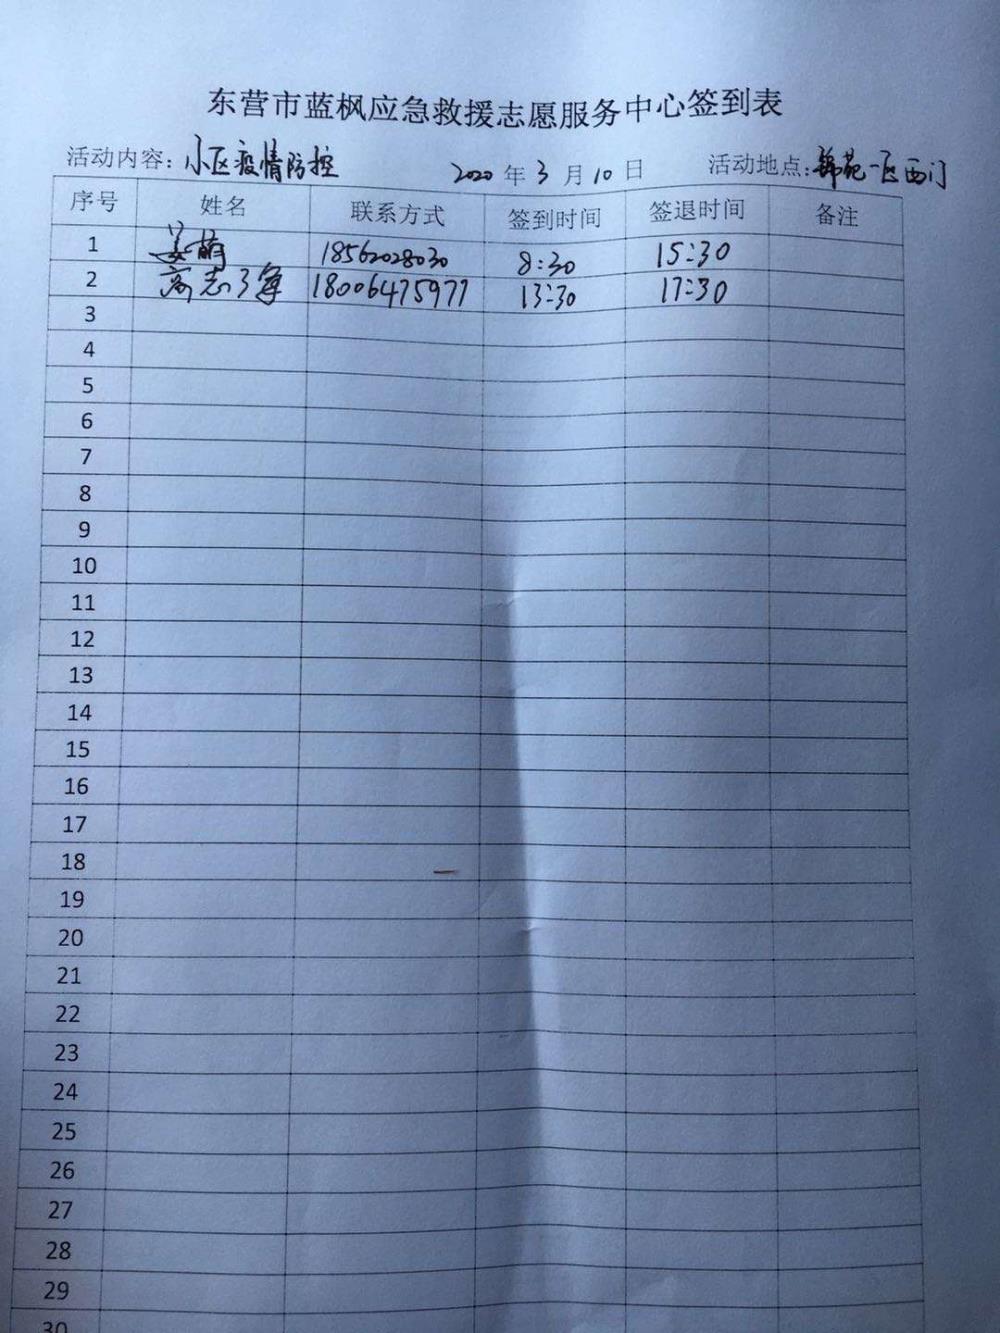 东营市蓝枫应急救援志愿服务中心签到表
活动内容：小区疫情防控 2020 年 3 月 10 日 活动地点：锦苑一区西门
序号 姓名 联系方式 签到时间 签退时间 备注
1 姜萌 18562028030 8:30 15:30
2 高志军 18006475977 13:30 17:30
3
4
5
6
7
8
9
10
11
12
13
14
15
16
17
18
19
20
21
22
23
24
25
26
27
28
29
30